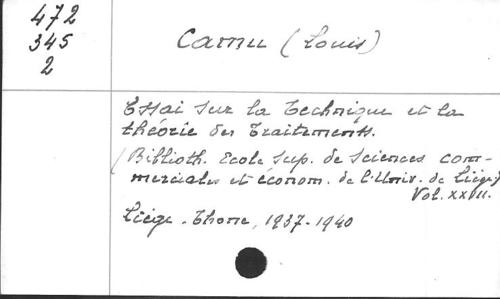 472
345
2
Camu (Louis)
Essai sur la Technique et la
théorie des Traitements.
(Biblioth. Ecole sup. de Sciences com-
merciales et économ. de l'Univ. de Liège)
Vol. XXVII.
Liège - Thone, 1937-1940